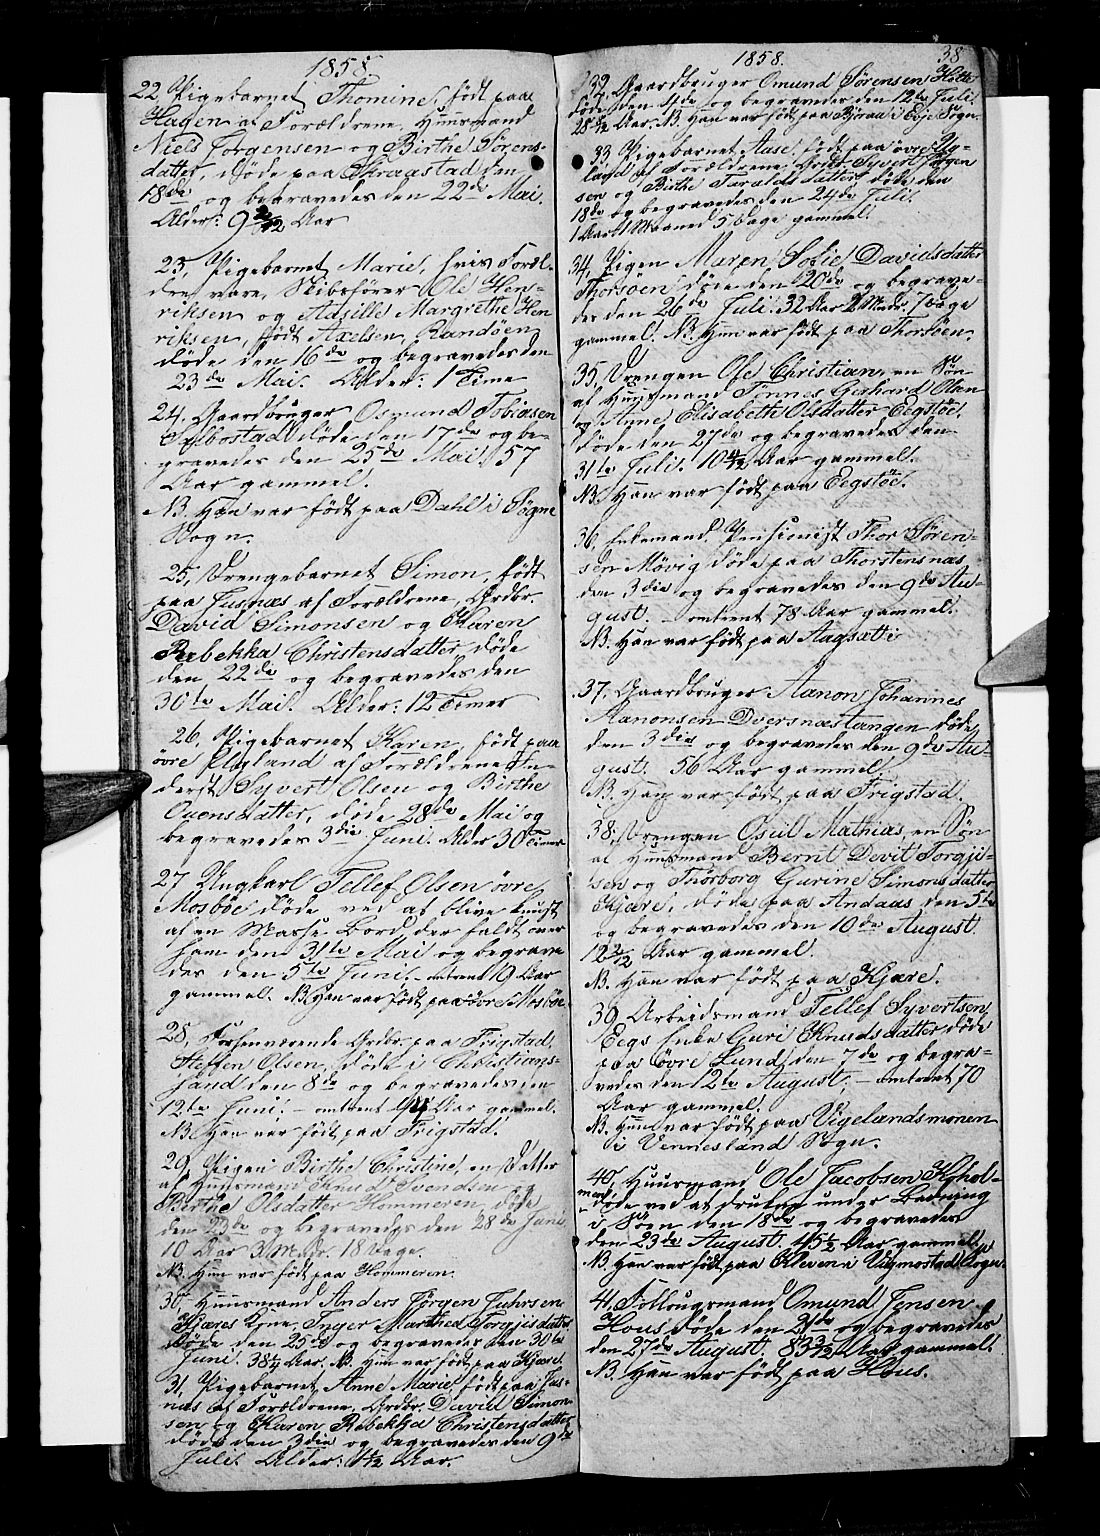 1858
22, Pigebarnet Thomine, født paa
Hagen af Forældrene, Huusmand
Niels Jørgensen og Birthe Sørens-
datter, døde paa Skraastad den
18de og begravedes den 22de Mai.
Alder: 9 2/12 Aar
23, Pigebarnet Marie, hvis Foræl-
dre vare, Skibsfører Ole Hen-
riksen og Adsille Margrethe Hen
riksen, født Axelsen, Randøen,
døde den 16de og begravedes den
23de Mai. Alder: 1 Time
24, Gaardbruger Osmund Tobiasen
døde den 17de og be-
gravedes den 25de Mai, 57
Aar gammel.
NB. Han var født paa Dahl i Søgne
Sogn.
25, Drengebarnet Simon, født
paa Jusnæs af Forældrene, Grdbr.
David Simonsen og Karen
Rebekka Christensdatter døde
den 22de og begravedes den
30te Mai. Alder: 12 Timer
26, Pigebarnet Karen, født paa
øvre Ugland af Forældrene In-
derst Syvert Olsen og Birthe
Ouensdatter, døde 28de Mai og
begravedes 3die Juni. Alder 30 Timer
27 Ungkarl Tellef Olsen øvre
Mosbøe døde ved at blive knust
af en Masse Bord, der faldt over
ham den 31te Mai og begrave
des den 5te Juni, omtrent 19 Aar
gammel. NB. Han var født paa øvre Mosbøe
28, Forhenværende Grdbr. paa Frigstad,
Steffen Olsen, døde i Christians-
sand den 8de og begravedes den
12te Juni. – omtrent 44 Aar gammel.
NB. Han var født paa Frigstad.
29, Pigen Birthe Christine, en Datter
af Huusmand Knud Svendsen og
Birthe Olsdatter Hommeren, døde
den 23de og begravedes den 28de Juni,
10 Aar 3 Mdr. 18 Dage.
NB. Hun var født paa Hommeren.
30, Huusmand Anders Jørgen Juhrsen
Kjæres Kone, Inger Marthea Torgjusdatter
døde den 25de og begravedes den 30te
Juni. 38¼ Aar. NB. Hun var født paa Kjære.
31, Pigebarnet Anne Marie, født paa Jus-
næs af Forældrene, Grdbr. David Simon-
sen og Karen Rebekka Christensdatter
døde den 3die og begravedes den 9de
Juli. Alder: 1½ Aar.
1858.
38
32, Gaardbruger Omund Sørensen
døde den 4de og begravedes den 12te Juli.
Aar. NB. Han var født paa Bjoraa i Evje Sogn.
33, Pigebarnet Aase, født paa øvre Ug-
land af Forældrene, Syvert Jørgen
sen og Birthe Taraldsdatter, døde den
18de og begravedes den 24de Juli.
1 Aar 1 Maaned 5 Dage gammel.
34, Pigen Maren Sofie Davidsdatter
Thorsøen døde den 20de og begrave-
des den 26de Juli. 32 Aar 2 Mdr. 7 Dage
gammel. NB. Hun var født paa Thorsøen.
35, Drengen Ole Christian, en Søn
af Huusmand Tønnes Gerhard Olsen
og Anne Elisabeth Olsdatter Eegstøe,
døde den 27de og begravedes den
31te Juli. 10 4/12 Aar gammel.
NB. Han var født paa Eegstøe.
36, Enkemand, Pensionist Thor Søren-
sen Møvig døde paa Thorstensnæs
den 3die og begravedes den 9de Au-
gust. – omtrent 78 Aar gammel.
NB. Han var født paa Aagsæt i
37, Gaardbruger Aanon Johannes
Aanonsen Dversnæstangen døde
den 3die og begravedes den 9de Au-
gust. 56 Aar gammel.
NB. Han var født paa Frigstad.
38, Drengen Osuil Mathias, en Søn
af Huusmand Bernt Devit Torgju-
sen og Thorborg Gurine Simonsdatter
Kjære, døde paa Andaas den 5te
og begravedes den 10de August.
12 2/12 Aar gammel.
NB. Han var født paa Kjære.
39, Arbeidsmand Tellef Syvertsen
Eegs Enke Guri Knudsdatter døde
paa Øvre Lund den 7de og begra-
vedes den 12te August, – omtrent 70
Aar gammel.
NB. Hun var født paa Vigelandsmonen
i Vennesland Sogn.
40, Huusmand Ole Jacobsen Kjhol-
men døde ved at drukne under Badning
i Søen den 18de og begravedes
den 23de August. 45½ Aar gammel.
NB. Han var født paa Kleven i Valmestad Sogn.
41, Follougsmand Omund Jensen
Hous døde den 21de og begravedes
den 27de August. 83 3/12 Aar gammel.
NB. Han var født paa Hous.